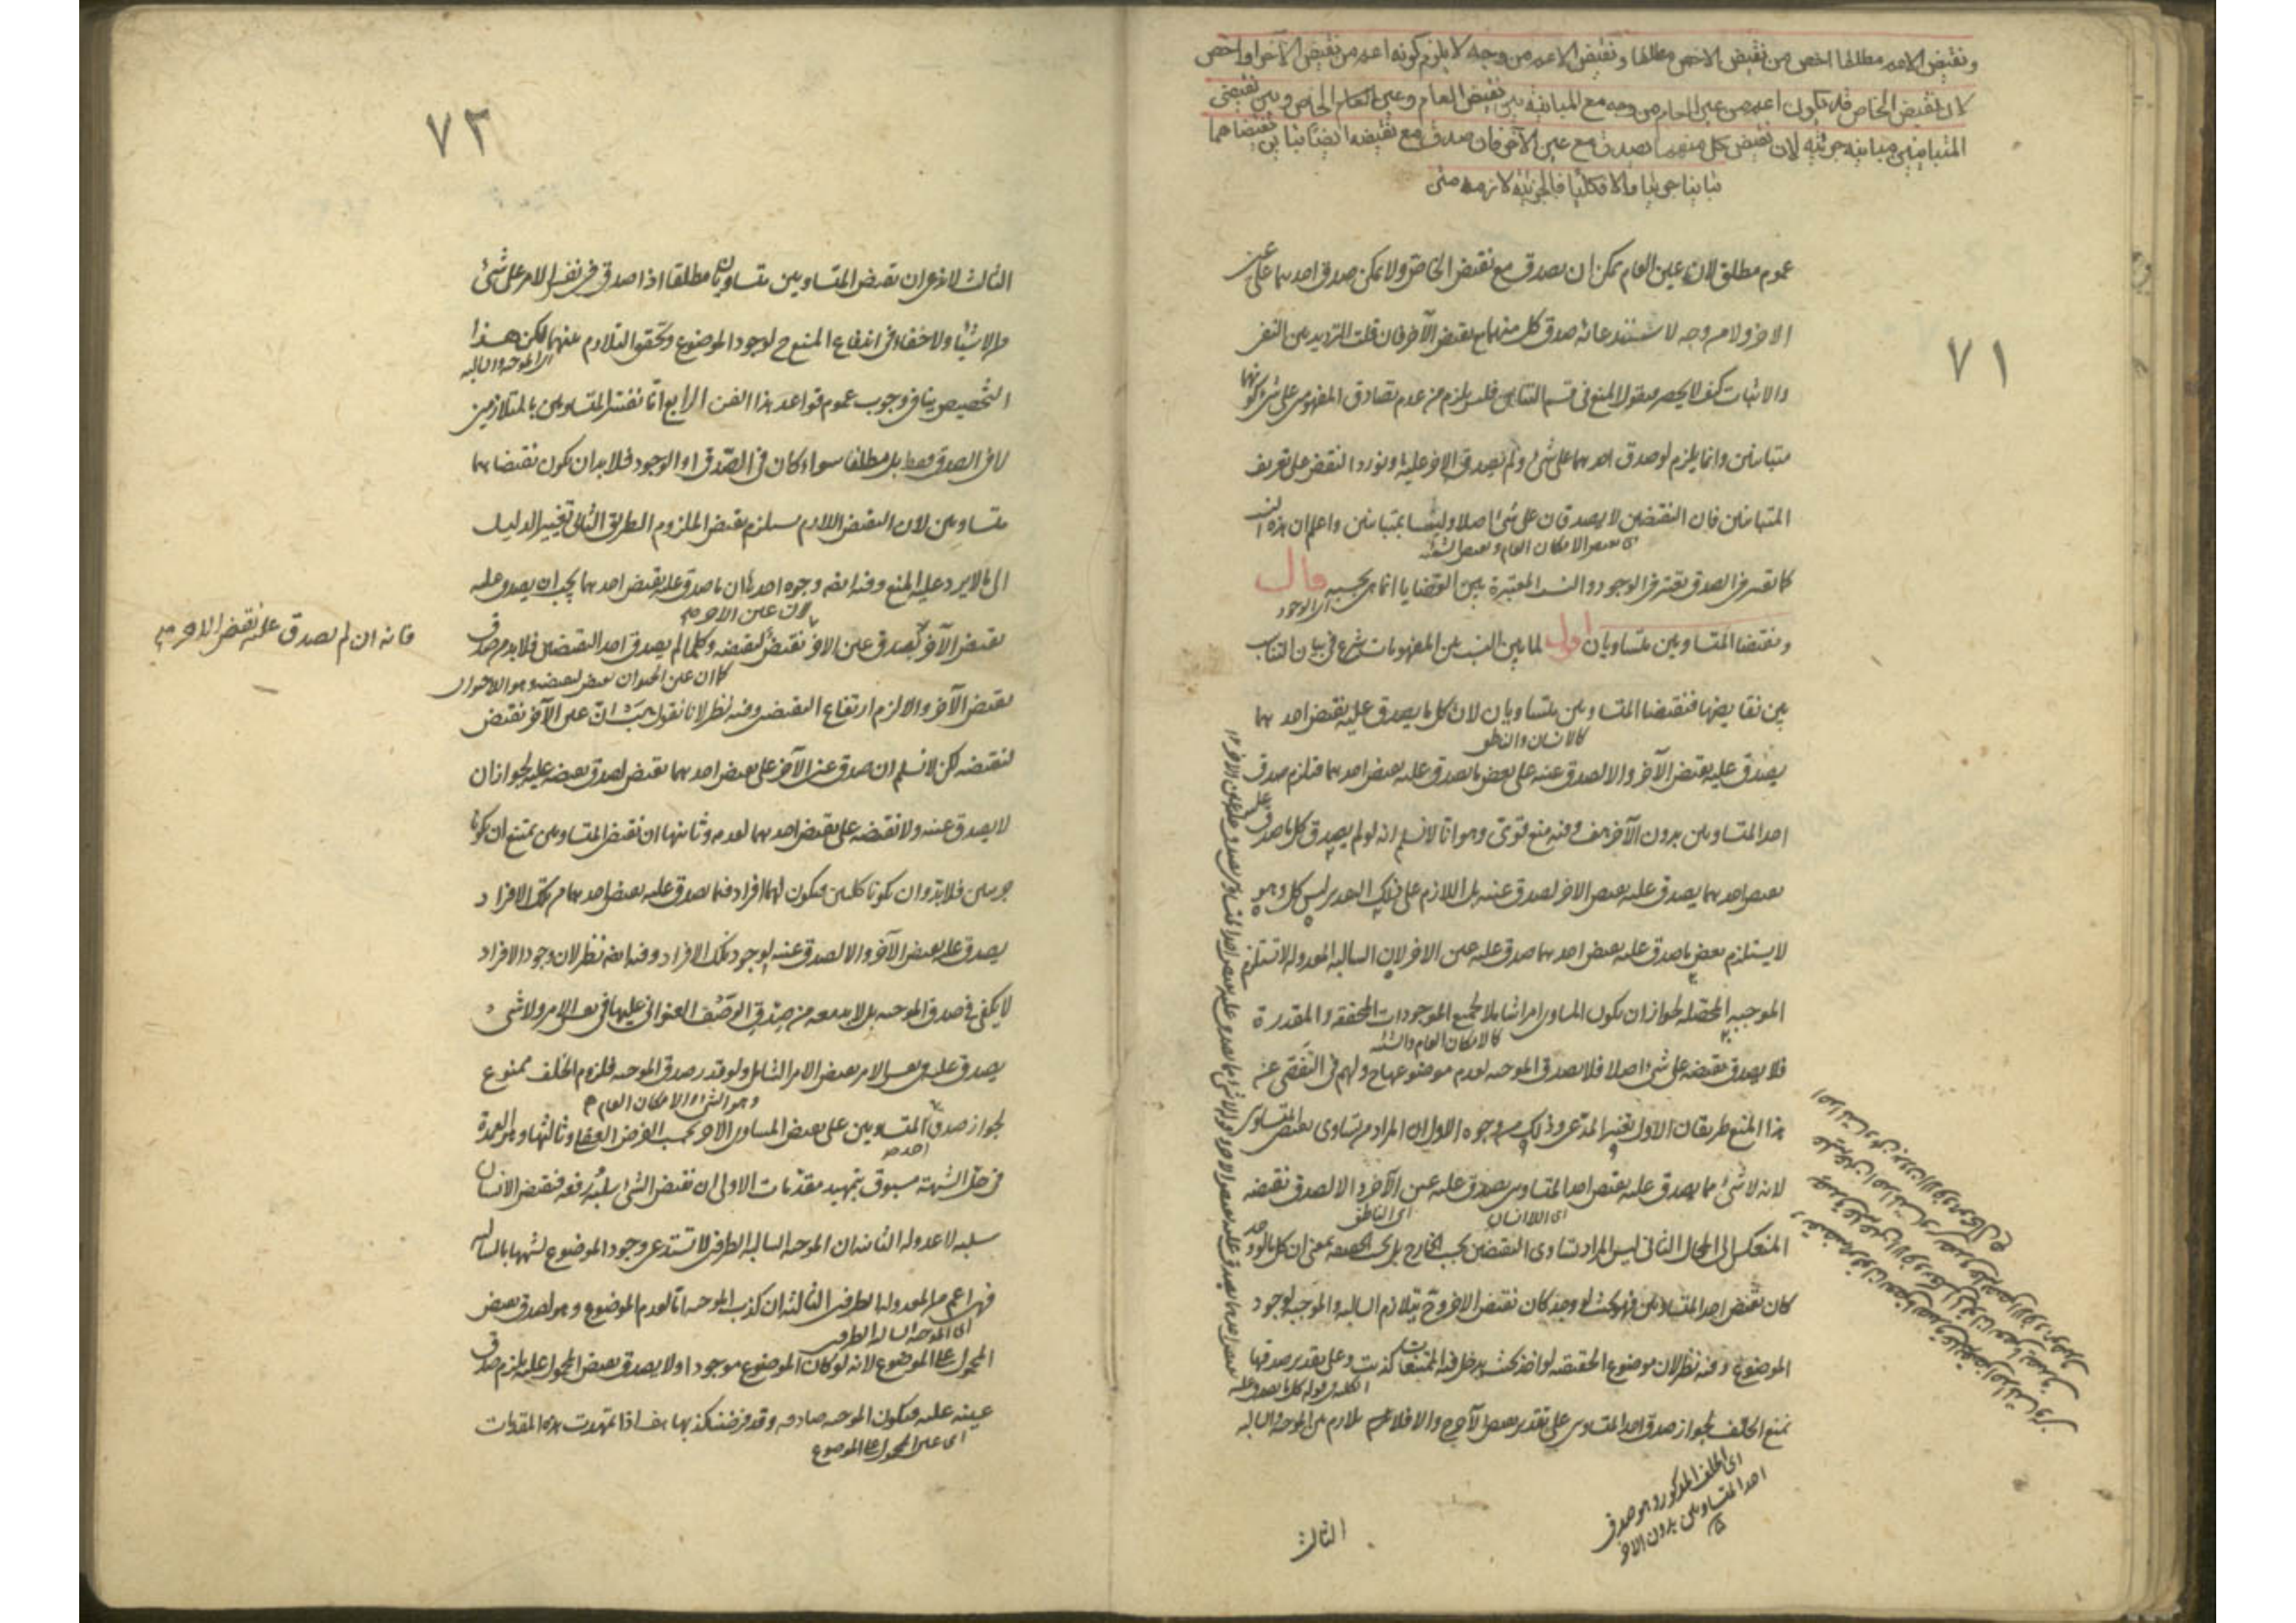 ونقيض الاعم مطلقا اخص من نقيض الاخص مطلقا ونقيض الاعم من وجه لا يلزم كونه اعم من نقيض الآخر او اخص
لان نقيض الخاص قد يكون اعم من عين العام من وجه مع المباينة بين نقيض العام وعين الخاص وبين نقيضي
المتباينين مباينة جزئية لان نقيض كل منهما يصدق مع عين الآخر فان صدق مع نقيضه ايضا تباين نقيضاهما
تباينا جزئيا والا فكليا فالجزئية لازمة متن
٧١
عموم مطلق لان عين العام يمكن ان يصدق مع نقيض الخاص ولا يمكن صدق احدهما على عين
الاخر ولا من وجه لاستدعائه صدق كل منهما مع نقيض الآخر فان قلت الترديد بين النفي
والاثبات كيف لا يحصر فنقول المنع في قسم التباين فليس يلزم من عدم تصادق المفهومين على شئ كونهما
متباينين وانما يلزم لو صدق احدهما على شئ ولم يصدق الاخر عليه او نورد النقض على تعريف
المتباينين فان النقيضين لا يصدقان على شئ اصلا وليسا بمتباينين واعلم ان هذه النسب
اى نقيض الامكان العام ونقيض الشئ
كما تعتبر في الصدق تعتبر في الوجود والنسب المعتبرة بين القضايا انما هى بحسبه قال
اى الوجود
ونقيضا المتساويين متساويان اقول لما بين النسب بين المفهومات شرع في بيان النسب
بين نقايضها فنقيضا المتساويين متساويان لان كل ما يصدق عليه نقيض احدهما
كالانسان والناطق
يصدق عليه نقيض الآخر والا لصدق عينه على بعض ما يصدق عليه نقيض احدهما فيلزم صدق
احد المتساويين بدون الآخر هف وفيه منع قوى وهو انا لا نسلم انه لو لم يصدق كل ما صدق عليه
نقيض احدهما يصدق عليه نقيض الاخر لصدق عينه بل اللازم على ذلك التقدير ليس كل وهو
لا يستلزم بعض ما صدق عليه نقيض احدهما صدق عليه عين الاخر لان السالبة المعدولة لا تستلزم
الموجبة المحصلة لجواز ان يكون المساوى امرا شاملا لجميع الموجودات المحققة والمقدرة
كالامكان العام والشئ
فلا يصدق نقيضه على شئ اصلا فلا يصدق الموجبة لعدم موضوعها ح ولهم في التفصى عن
هذا المنع طريقان الاول تغيير المدعى وذلك من وجوه الاول ان المراد من تساوى نقيضى المتساوى
لانه لا شئ مما يصدق عليه نقيض احد المتساويين يصدق عليه عين الآخر والا لصدق نقيضه
اى اللاانسان اى الناطق
المنعكس الى المحال الثانى ليس المراد تساوى النقيضين بحسب الخارج بل بحسب الحقيقة بمعنى ان كل ما لو وجد
كان نقيض احد المتساويين فهو بحيث لو وجد كان نقيض الاخر وح يتلازم السالبة والموجبة لوجود
الموضوع وفيه نظر لان موضوع الحقيقة لو اخذ بحيث يدخل فيه الممتنعات كذبت وعلى تقدير صدقها
الكلية وقوله كل ما يصدق عليه
نمنع الخلف لجواز صدق احد المتساوى على تقدير نقيض الآخر ح والا فلا نم تلازم بين الموجبة والسالبة
اى الخلف المذكور وهو صدق
احد المتساويين بدون الاخر
الثالث
٧٢
الثالث لا ندعى ان نقيض المتساويين متساويان مطلقا اذا صدق في نفس الامر على شئ
من الاشياء ولا خفاء في اندفاع المنع ح لوجود الموضوع وتحقق التلازم بينهما لكن هذا
اى الموجبة والسالبة
التخصيص ينافى وجوب عموم قواعد هذا الفن الرابع انا نفسر المتساويين بالمتلازمين
لا في الصدق فقط بل مطلقا سواء كان في الصدق او الوجود فلا بد ان يكون نقيضاهما
متساويين لان النقيض اللازم يستلزم نقيض الملزوم الطريق الثانى تغيير الدليل
الى ما لا يرد عليه المنع وفيه ايضا وجوه احدها ان ما صدق عليه نقيض احدهما يجب ان يصدق عليه
لان عين الاخر
فانه ان لم يصدق عليه نقيض الاخر
نقيض الآخر لم يصدق عين الاخر نقيض لنقيضه وكلما لم يصدق احد النقيضين فلا بد من صدق
كما ان عين الحيوان نقيض لنقيضه وهو اللاحيوان
نقيض الآخر والا لزم ارتفاع النقيضين وفيه نظر لانا نقول هب ان عين الآخر نقيض
لنقيضه لكن لا نسلم ان صدق عين الآخر على نقيض احدهما نقيض لصدق نقيضه عليه لجواز ان
لا يصدق عينه ولا نقيضه على نقيض احدهما لعدمه وثانيها ان نقيض المتساويين يمتنع ان يكونا
جزئيين فلا بد وان يكونا كليين فيكون لهما افراد فما يصدق عليه نقيض احدهما من تلك الافراد
يصدق عليه نقيض الآخر والا لصدق عينه لوجود تلك الافراد وفيه ايضا نظر لان وجود الافراد
لا يكفى في صدق الموجبة بل لا بد معه من صدق الوصف العنوانى عليها في نفس الامر ولا شئ
يصدق عليه في نفس الامر نقيض الامر الشامل ولو قدر صدق الموجبة فلزوم الخلف ممنوع
وهو الشئ او الامكان العام
لجواز صدق المتساويين على نقيض المساوى الاخر بحسب الفرض العقلى وثالثها وهو العمدة
احد
في حل الشبهة مسبوق بتمهيد مقدمات الاولى ان نقيض الشئ سلبه ورفعه فنقيض الانسان
سلبه لا عدوله الثانية ان الموجبة السالبة الطرفين لا تستدعى وجود الموضوع لشبهها بالسالبة
فهى اعم من المعدولة الطرفين الثالثة ان كذب الموجبة اما لعدم الموضوع وهو لصدق نقيض
اى الموجبة السالبة الطرفين
المحمول على الموضوع لانه لو كان الموضوع موجودا ولا يصدق نقيض المحمول عليه يلزم صدق
عينه عليه فيكون الموجبة صادقة وقد فرضنا كذبها هف اذا تمهدت هذه المقدمات
اى عين المحمول على الموضوع